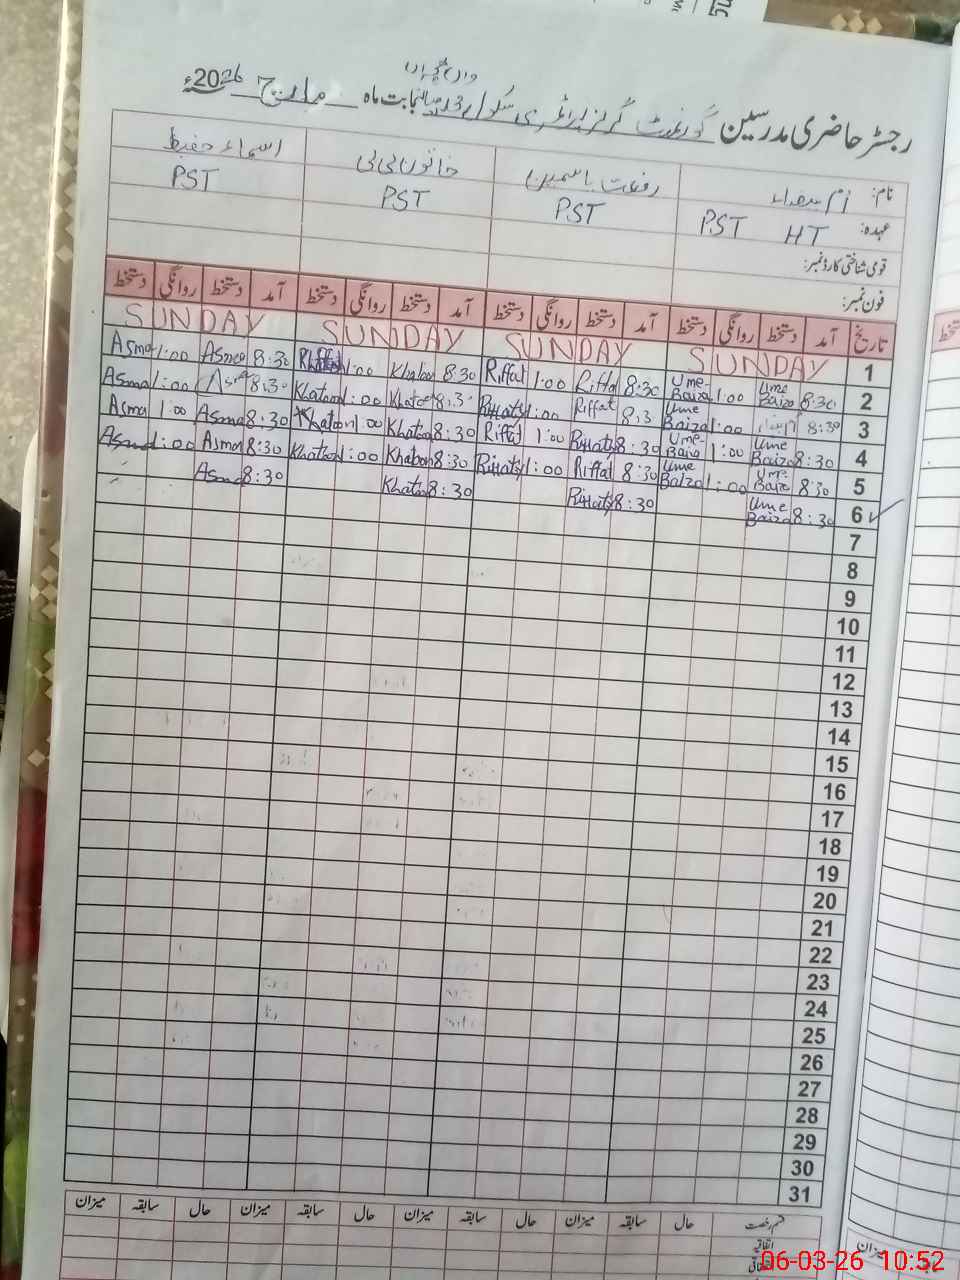 رجسٹر حاضری مدرسین گورنمنٹ گرلز پرائمری سکول بابت ماہ مارچ 2026ء
نام: ام بیضاء رفعت یاسمین خاتون بی بی اسماء حفیظ
عہدہ: HT PST PST PST PST
قومی شناختی کارڈ نمبر:
فون نمبر:
تاریخ آمد دستخط روانگی دستخط آمد دستخط روانگی دستخط آمد دستخط روانگی دستخط آمد دستخط روانگی دستخط
1 SUNDAY SUNDAY SUNDAY SUNDAY
2 8:30 Ume Baiza 1:00 Ume Baiza 8:30 Riffat 1:00 Riffat 8:30 Khatoon 1:00 8:30 Asma 1:00 Asma
3 8:30 1:00 Ume Baiza 8:3 Riffat 1:00 Riffaty 8:30 Khatoon 1:00 Khatoon 8:30 Asma 1:00 Asma
4 8:30 Ume Baiza 1:00 Ume Baiza 8:30 Riffaty 1:00 Riffat 8:30 Khatoon 1:00 Khatoon 8:30 Asma 1:00 Asma
5 8:30 Ume Baiza 1:00 Ume Baiza 8:30 Riffat 1:00 Riffaty 8:30 Khatoon 1:00 Khatoon 8:30 Asma 1:00 Asma
6 8:30 Ume Baiza 8:30 Riffaty 8:30 Khatoon 8:30 Asma
7
8
9
10
11
12
13
14
15
16
17
18
19
20
21
22
23
24
25
26
27
28
29
30
31
قسم رخصت حال سابقہ میزان حال سابقہ میزان حال سابقہ میزان حال سابقہ میزان
اتفاقیہ
میزان
06-03-26 10:52